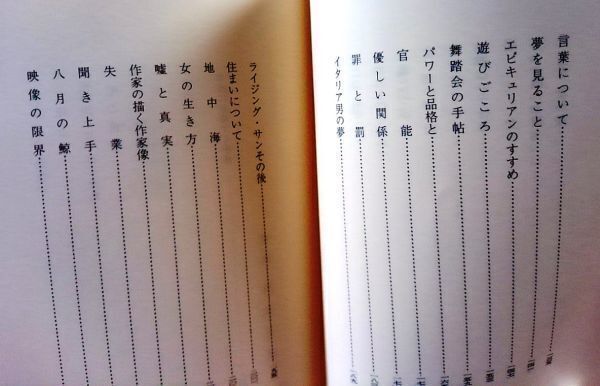 言葉について
夢を見ること
エピキュリアンのすすめ
遊びごころ
舞踏会の手帖
パワーと品格と
官能
優しい関係
罪と罰
イタリア男の夢
ライジング・サンその後
住まいについて
地中海
女の生き方
嘘と真実
作家の描く作家像
失業
聞き上手
八月の鯨
映像の限界